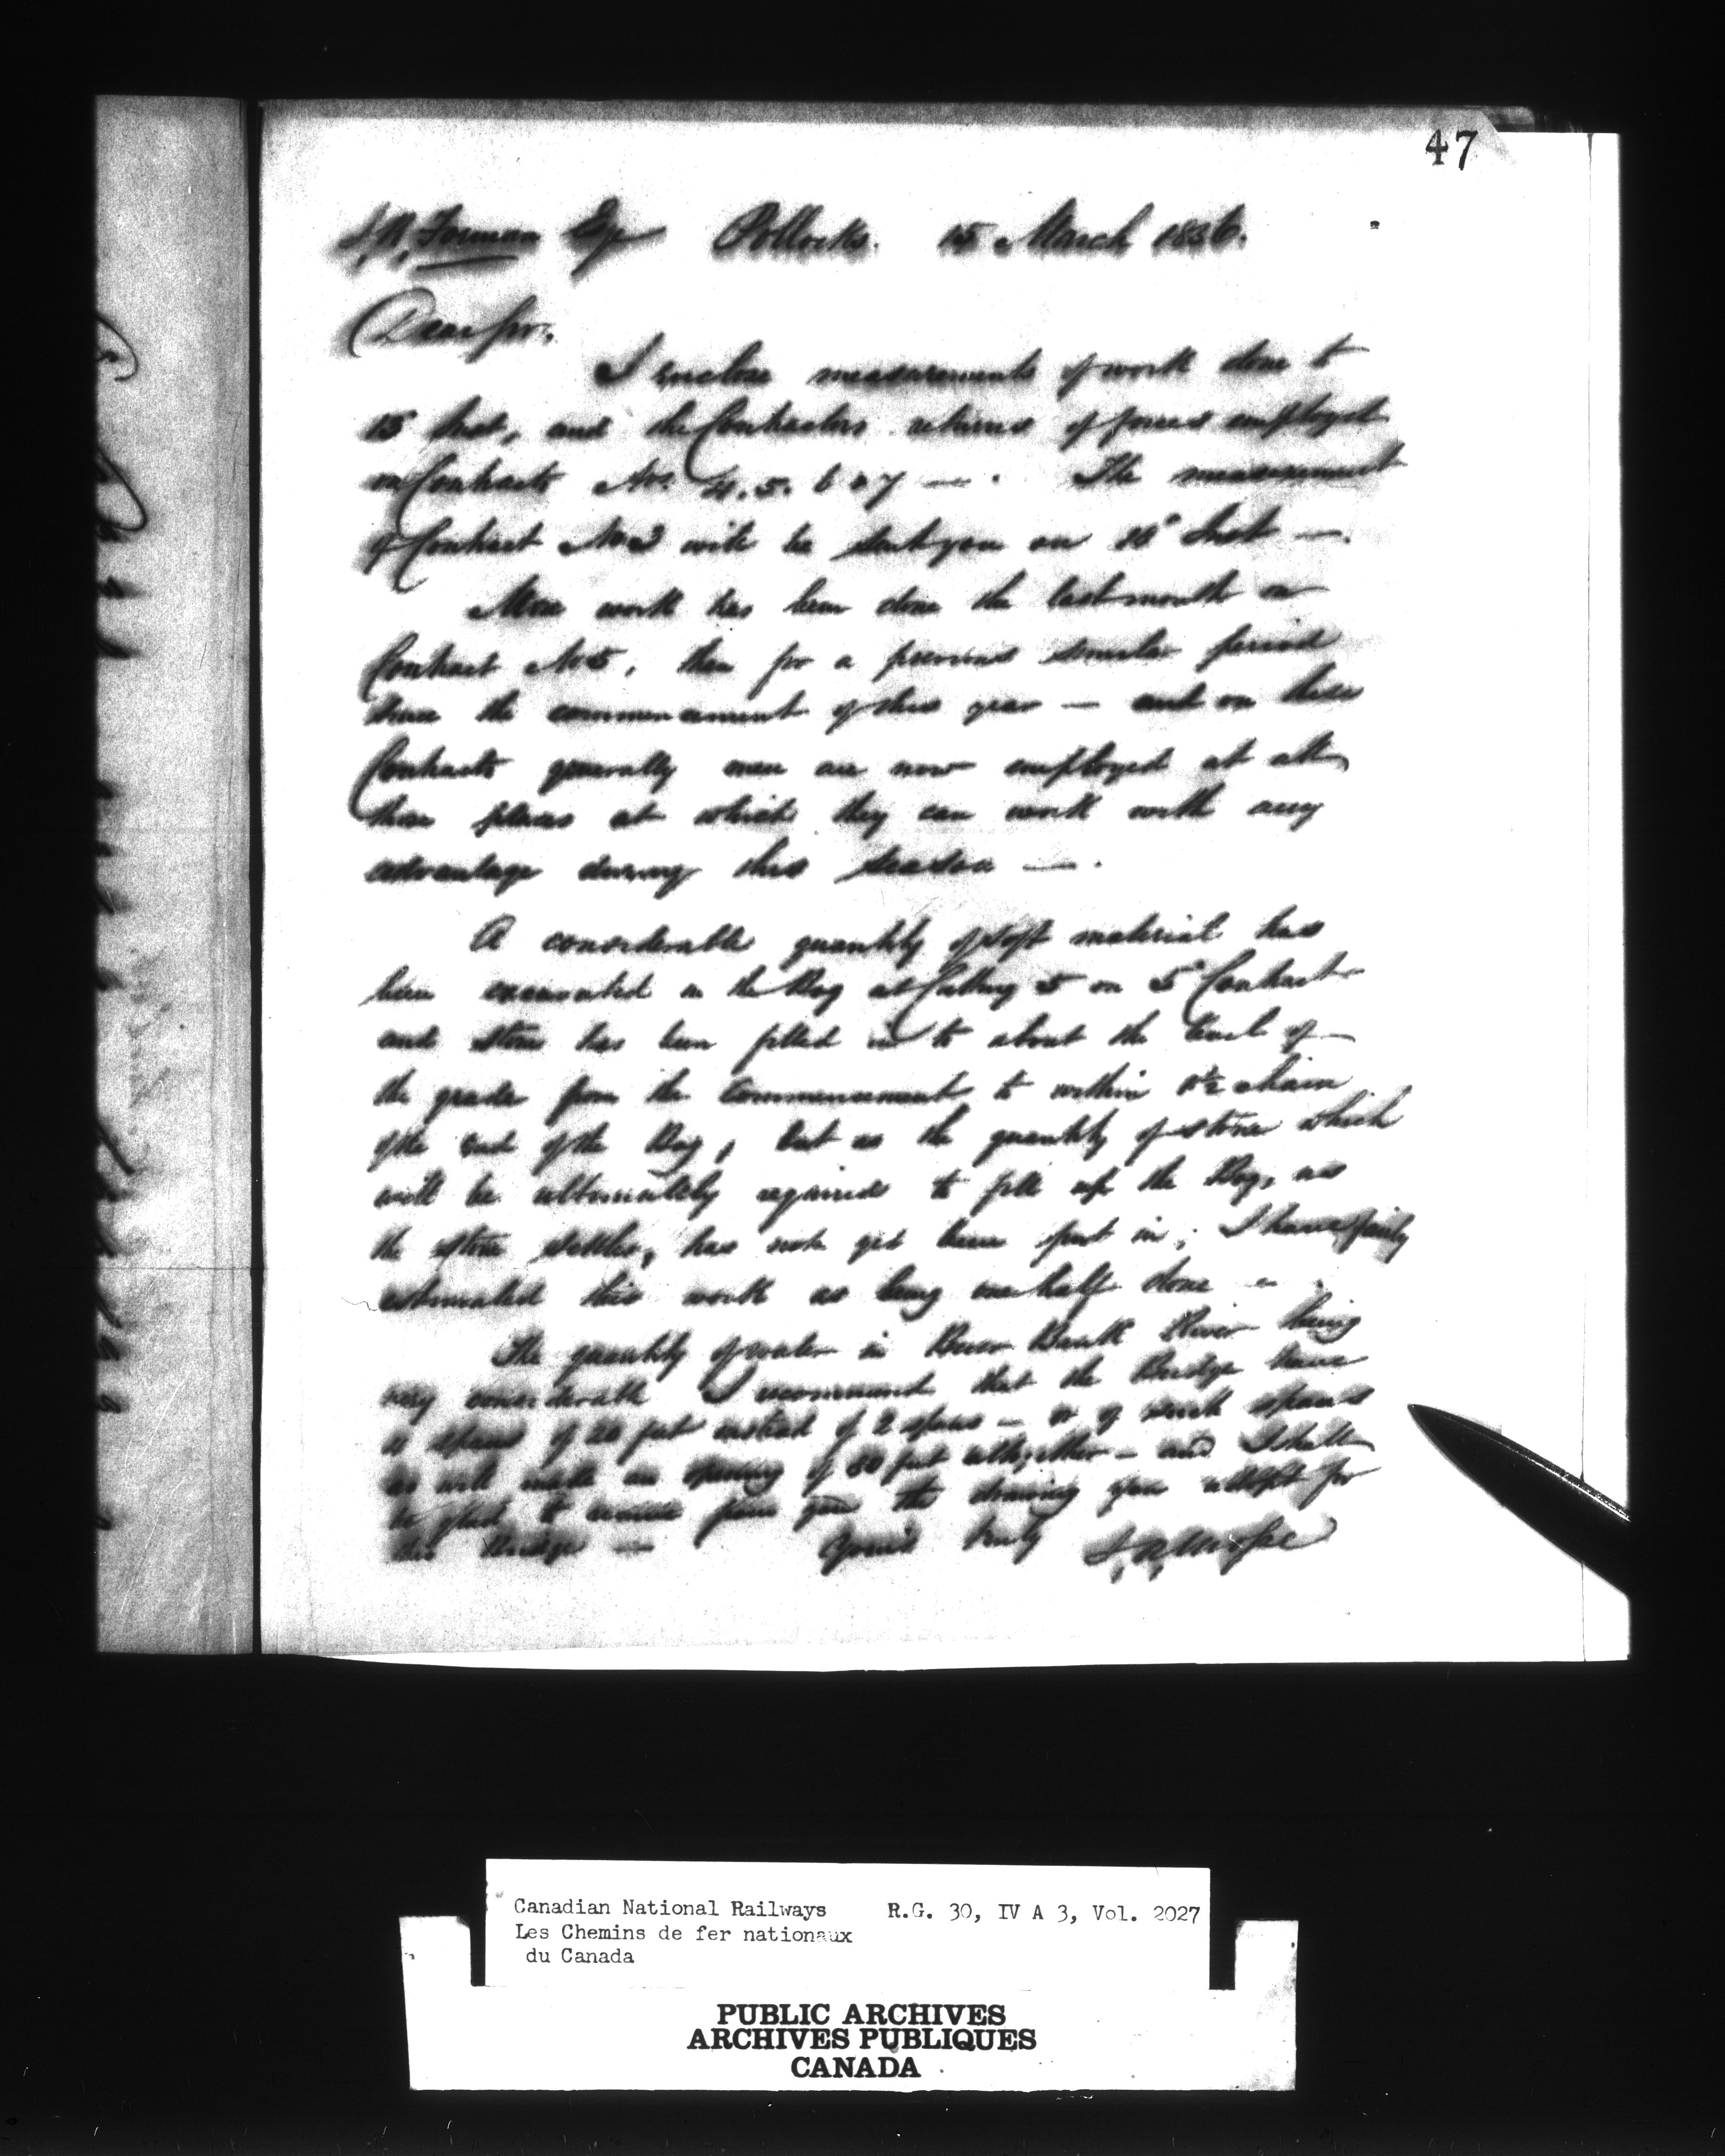 47
J. R. Forman Esqr Pollocks. 15 March 1856.
Dear Sir,
I enclose measurements of work done to
15 Inst, and the Contractors returns of forces employed
on Contracts Nos. 4. 5. 6 & 7 — . The measurement
of Contract No 3 will be sent you on Inst — .
More work has been done the last month on
Contract No 5, than for a previous similar period
since the commencement of this year — and on these
Contracts generally men are now employed at all
those places at which they can work with any
advantage during this season — .
A considerable quantity of soft material has
been excavated in the Bog at Cutting 5 on 5th Contract
and stone has been filled in to about the level of
the grade from the commencement to within chain
of the end of the Bog, but as the quantity of stone which
will be ultimately required to fill up the Bog, as
the stone settles, has not yet been put in; I have
estimated this work as being one half done —
The quantity of water in River being
very considerable I recommend that the Bridge have
a span of 20 feet instead of 2 spans — or of such spans
as will make an opening of feet altogether — and I shall
be glad to receive from you the drawing you adopt for
this Bridge — Yours truly
Canadian National Railways R.G. 30, IV A 3, Vol. 2027
Les Chemins de fer nationaux
du Canada
PUBLIC ARCHIVES
ARCHIVES PUBLIQUES
CANADA